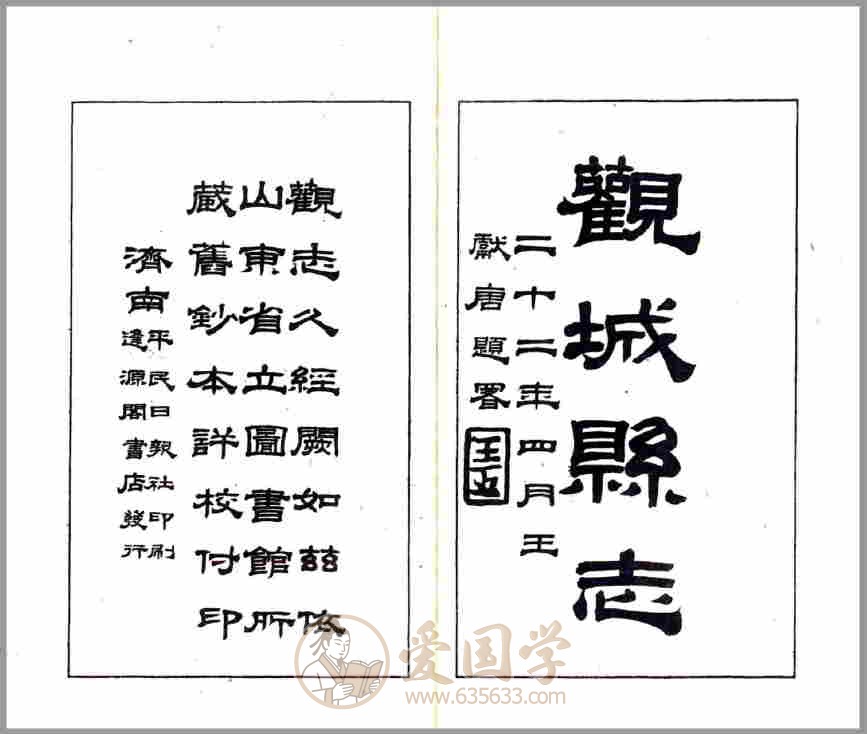 觀城縣志
二十二年四月王
獻唐題署
觀志久經闕如茲依
山東省立圖書館所
藏舊鈔本詳校付印
濟南平民日報社印刷
逢源閣書店發行
爱国学
www.635633.com